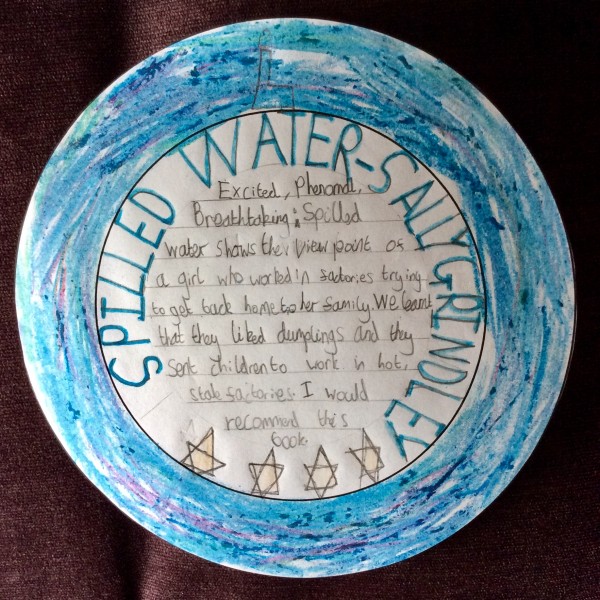 SPILLED WATER-SALLY GRINDLEY
Excited, Phenomal,
Breathtaking; Spilled
water shows the view point of
a girl who worked in factories trying
to get back home too her family. We learnt
that they liked dumplings and they
sent children to work in hot,
stale factories. I would
recommend this
book.